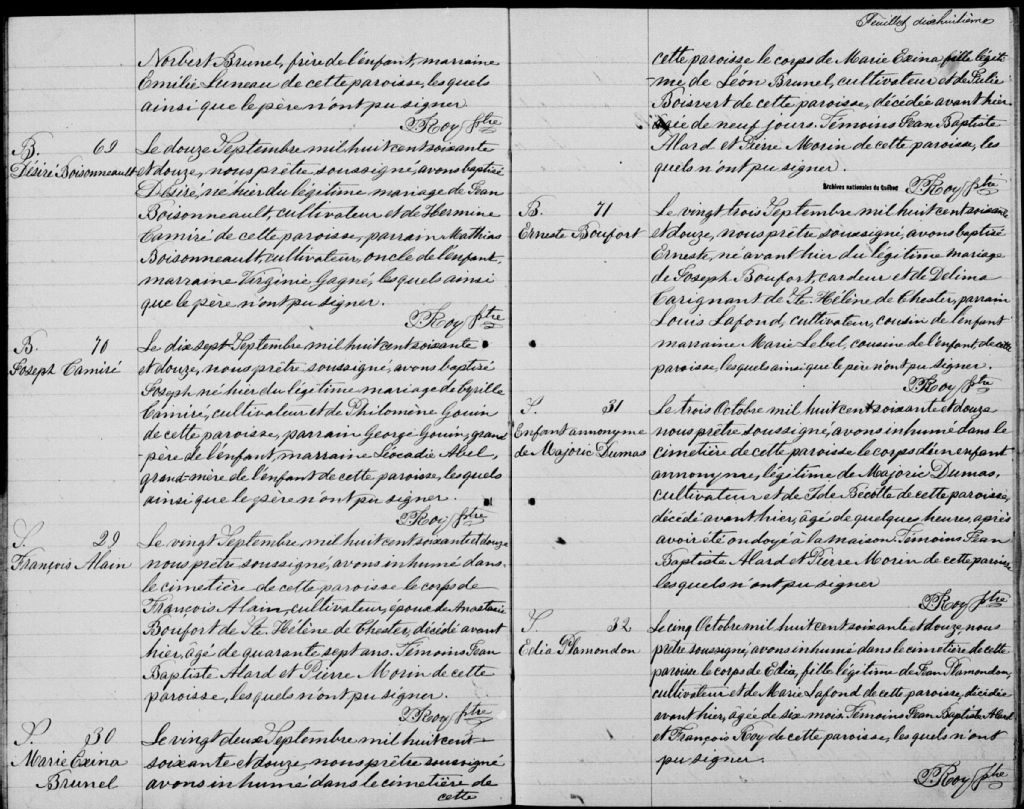 Norbert Brunel, frère de l'enfant, marraine
Emilie Luneau de cette paroisse, lesquels
ainsi que le père n'ont pu signer
P. Roy ptre
B. 69
Désiré Boisonneault
Le douze Septembre mil huit cent soixante
et douze, nous prêtre soussigné, avons baptisé
Désiré, né hier du légitime mariage de Jean
Boisonneault, cultivateur et de Hermine
Camiré de cette paroisse, parrain Mathias
Boisonneault, cultivateur, oncle de l'enfant,
marraine Virginie Gagné, lesquels ainsi
que le père n'ont pu signer.
P. Roy ptre
B. 70
Joseph Camiré
Le dix sept Septembre mil huit cent soixante
et douze, nous prêtre soussigné, avons baptisé
Joseph né hier du légitime mariage de Cyrille
Camiré, cultivateur et de Philomène Gouin
de cette paroisse, parrain George Gouin, grand
-père de l'enfant, marraine Léocadie Abel,
grand-mère de l'enfant de cette paroisse, lesquels
ainsi que le père n'ont pu signer.
P. Roy ptre
S. 29
François Alain
Le vingt Septembre mil huit cent soixante et douze
nous prêtre soussigné, avons inhumé dans
le cimetière de cette paroisse le corps de
François Alain, cultivateur, époux de Anastasie
Boufort de Ste Hélène de Chester, décédé avant
hier, agé de quarante sept ans. Témoins Jean
Baptiste Alard et Pierre Morin de cette
paroisse, lesquels n'ont pu signer.
P. Roy ptre
S. 30
Marie Exina
Brunel
Le vingt deux Septembre mil huit cent
soixante et douze, nous prêtre soussigné
avons inhumé dans le cimetière de
cette
Feuillet dixhuitième
cette paroisse le corps de Marie Exina fille légiti
-me de Léon Brunel, cultivateur et de Julie
Boisvert de cette paroisse, décédée avant hier
agée de neuf jours. Témoins Jean Baptiste
Alard et Pierre Morin de cette paroisse, les
quels n'ont pu signer.
Archives nationales du Québec
P. Roy ptre
B. 71
Erneste Boufort
Le vingt trois Septembre mil huit cent soixante
et douze, nous prêtre soussigné, avons baptisé
Erneste, né avant hier du légitime mariage
de Joseph Boufort, cardeur et de Delima
Carignant de Ste Hélène de Chester, parrain
Louis Lafond, cultivateur, cousin de l'enfant
marraine Marie Lebel, cousine de l'enfant, de cette
paroisse, lesquels ainsi que le père n'ont pu signer.
P. Roy ptre
S. 31
Enfant annonyme
de Majoric Dumas
Le trois Octobre mil huit cent soixante et douze
nous prêtre soussigné, avons inhumé dans le
cimetière de cette paroisse le corps d'un enfant
annonyme, légitime de Majoric Dumas,
cultivateur et de Bécotte de cette paroisse,
décédé avant hier, âgé de quelques heures, après
avoir été ondoyé à la maison. Témoins Jean
Baptiste Alard et Pierre Morin de cette paroisse
lesquels n'ont pu signer
P. Roy ptre
S. 32
Edia Plamondon
Le cinq Octobre mil huit cent soixante et douze, nous
prêtre soussigné, avons inhumé dans le cimetière de cette
paroisse le corps de Edia, fille légitime de Jean Plamondon,
cultivateur et de Marie Lafond de cette paroisse, décédée
avant hier, agée de six mois. Témoins Jean Baptiste Alard
et François Roy de cette paroisse, lesquels n'ont
pu signer.
P. Roy ptre